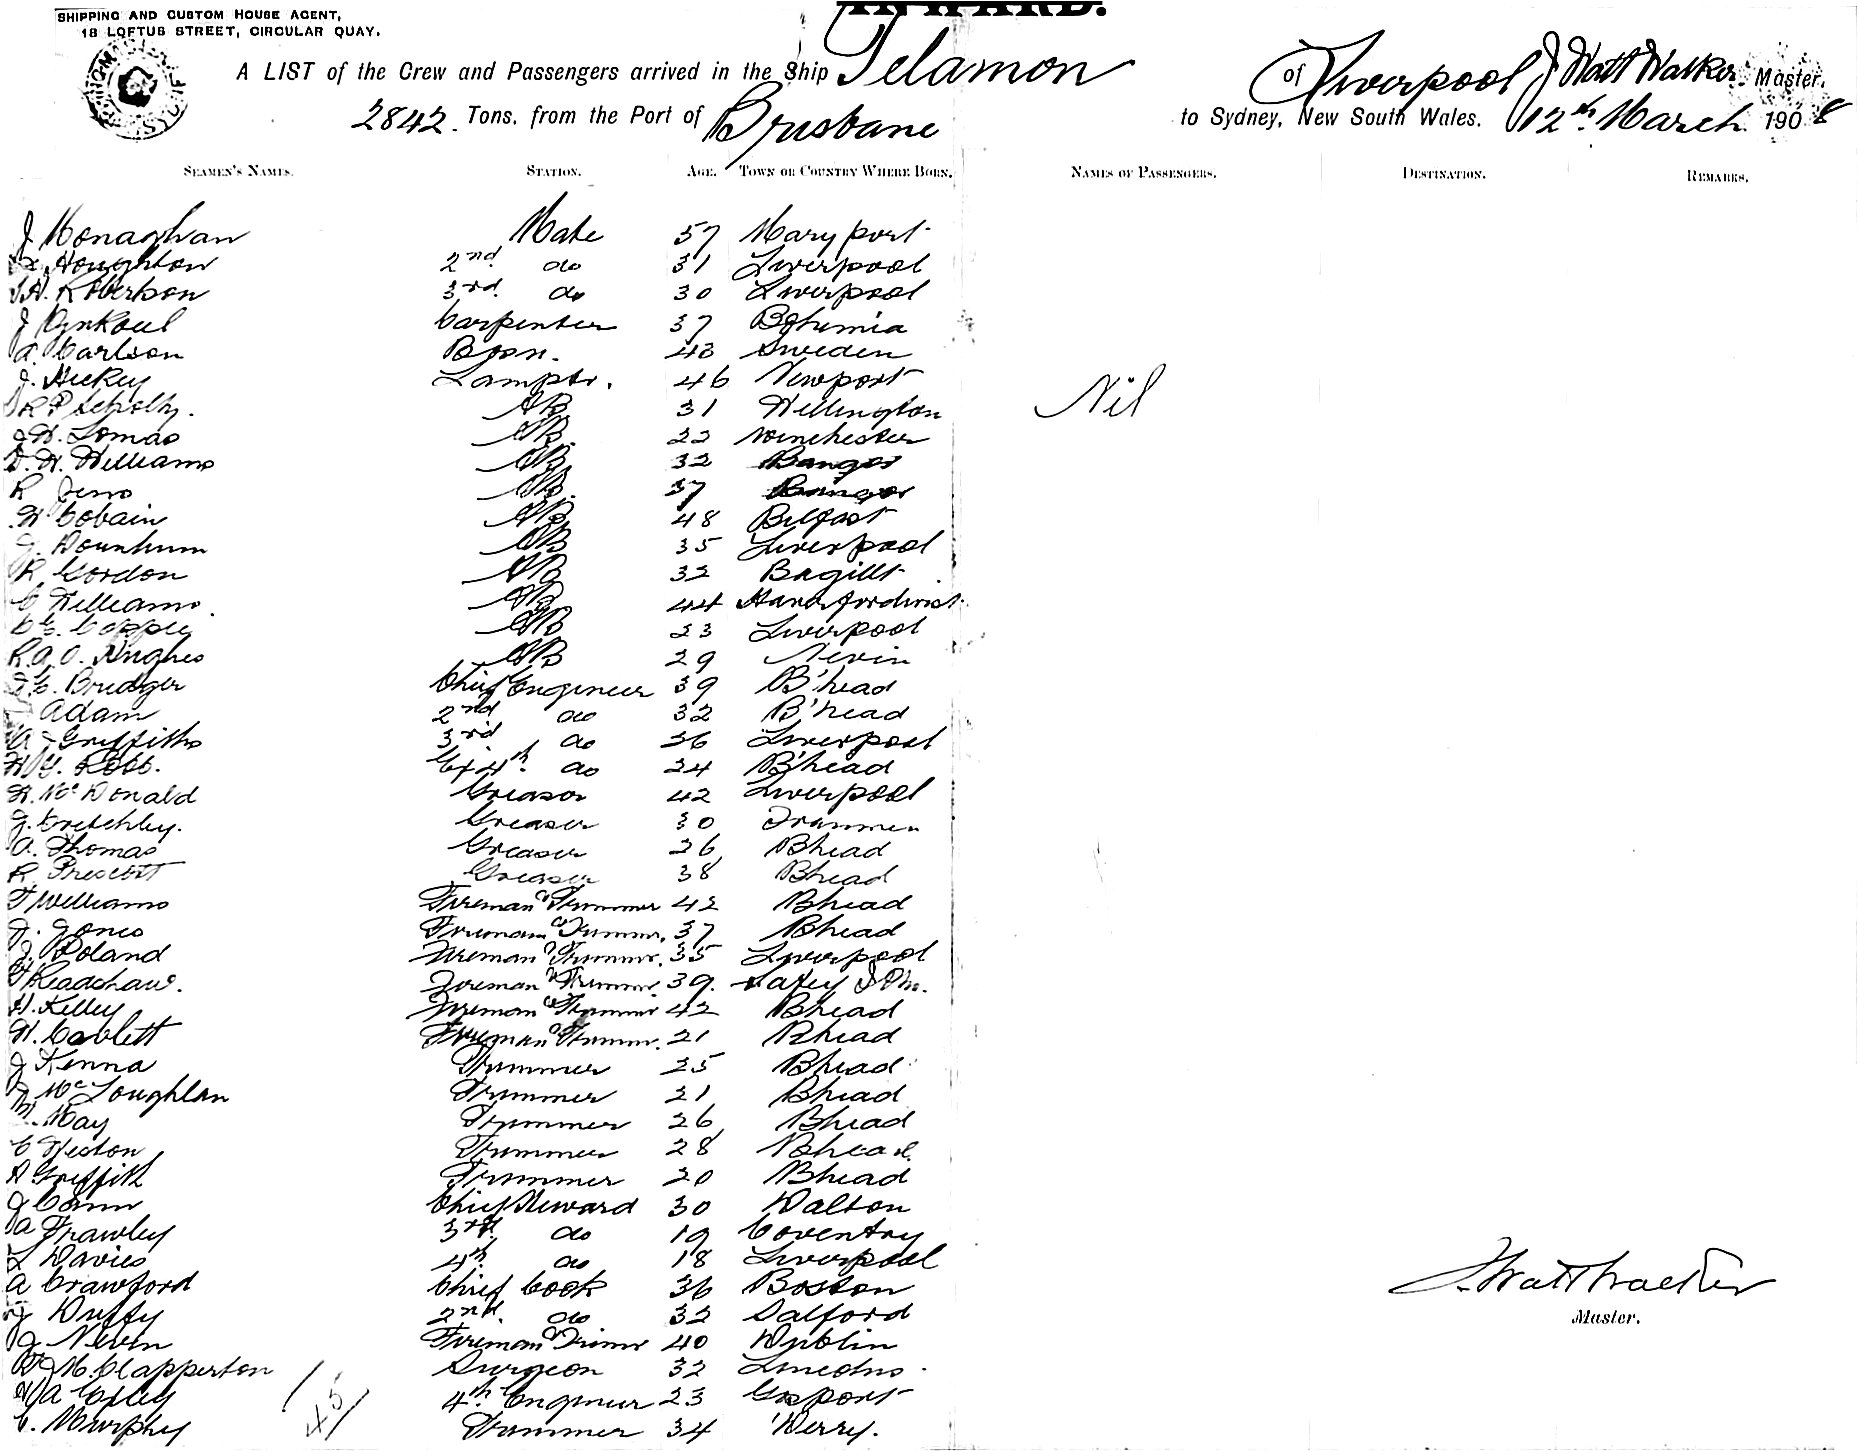 INWARD.
SHIPPING AND CUSTOM HOUSE AGENT,
18 LOFTUS STREET, CIRCULAR QUAY.
A LIST of the Crew and Passengers arrived in the Ship Telamon of Liverpool J Watt Walker Master,
2842. Tons, from the Port of Brisbane to Sydney, New South Wales. 12th March 1908
SEAMEN'S NAMES. STATION. AGE. TOWN OR COUNTRY WHERE BORN. NAMES OF PASSENGERS. DESTINATION. REMARKS.
J Monaghan Mate 57 Maryport
Houghton 2nd do 31 Liverpool
Robertson 3rd do 30 Liverpool
J Carpenter 37 Bohemia
A. Carlson Bosn. 43 Sweden
J. Hickey Lamptr. 46 Newport
R P AB 31 Wellington Nil
J W. Lomas AB. 22 Winchester
D. H. Williams AB 32 Bangor
R AB. 37 Bangor
W Cobain AB 48 Belfast
J. Dounhum AB 35 Liverpool
R. Gordon AB 32 Bagillt
C Williams. AB 44
AB 23 Liverpool
R. A. O. Hughes AB 29 Nevin
Bridger Chief Engineer 39 B'head
Adam 2nd do 32 B'head
A Griffiths 3rd do 26 Liverpool
Robb. Ex 4th do 24 B'head
W. McDonald Greaser 42 Liverpool
J. Cretchley. Greaser 30 Drammen
A. Thomas Greaser 26 Bhead
R. Prescott Greaser 38 Bhead
T Williams Fireman & Trimmer 42 Bhead
J. Jones Fireman & Trimmr. 37 Bhead
J. Boland Fireman & Trimmr. 35 Liverpool
Readshaw. Fireman & Trimmr. 39. Laxey I O M.
H. Kelley Fireman & Trimmr 42 Bhead
W. Coblett Fireman & Trimmr. 21 Bhead
J Kenna Trimmer 25 Bhead
J McLoughlan Trimmer 21 Bhead
May Trimmer 26 Bhead
C Weston Trimmer 28 Bhead.
A Griffith Trimmer 20 Bhead
J Cann Chief Steward 30 Walton
A Frawley 3rd. do 19 Coventry
L Davies 4th. do 18 Liverpool
A Crawford Chief Cook 36 Boston
J Duffy 2nd. do 32 Salford
J Neven Fireman & Trimr 40 Dublin
J. Watt Walker
Master.
Dr J M. Clapperton Surgeon 32 Lincolns
A Exley 4th. Engineer 23 Gosport
C. Murphy 45 Trimmer 34 Derry.